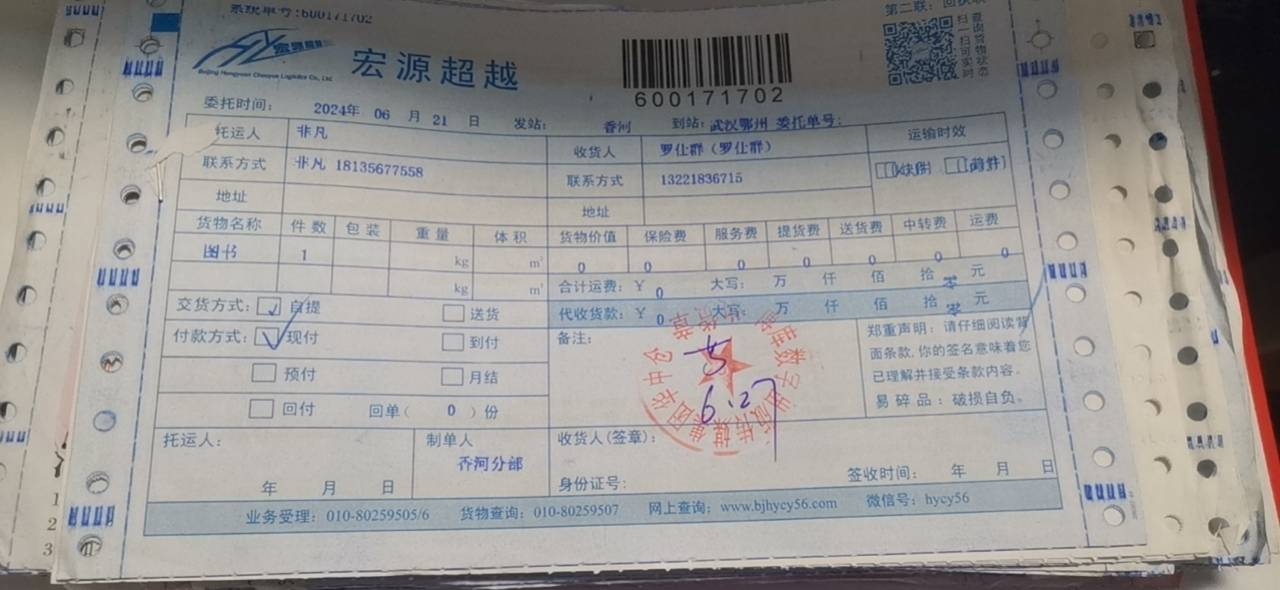 系统单号:600171702
第二联:
宏源超越
Beijing Hongyuan Chaoyue Logistics Co., Ltd.
扫一扫可实时
查询货物状态
600171702
委托时间: 2024年 06 月 21 日 发站: 香河 到站: 武汉鄂州 委托单号:
托运人 非凡 收货人 罗仕群(罗仕群) 运输时效
联系方式 非凡 18135677558 联系方式 13221836715
地址 地址
货物名称 件数 包装 重量 体积 货物价值 保险费 服务费 提货费 送货费 中转费 运费
图书 1 kg m³ 0 0 0 0 0 0 0
kg m³ 合计运费: ¥ 0 大写: 万 仟 佰 拾 零 元
交货方式: ✓ 自提 送货 代收货款: ¥ 0 大写: 万 仟 佰 拾 零 元
付款方式: ✓ 现付 到付 备注:
预付 月结
回付 回单( 0 )份
郑重声明: 请仔细阅读背
面条款,你的签名意味着您
已理解并接受条款内容。
易碎品: 破损自负。
6.27
托运人: 制单人 收货人(签章):
香河分部
年 月 日 身份证号: 签收时间: 年 月 日
业务受理: 010-80259505/6 货物查询: 010-80259507 网上查询: www.bjhycy56.com 微信号: hycy56
1
2
3